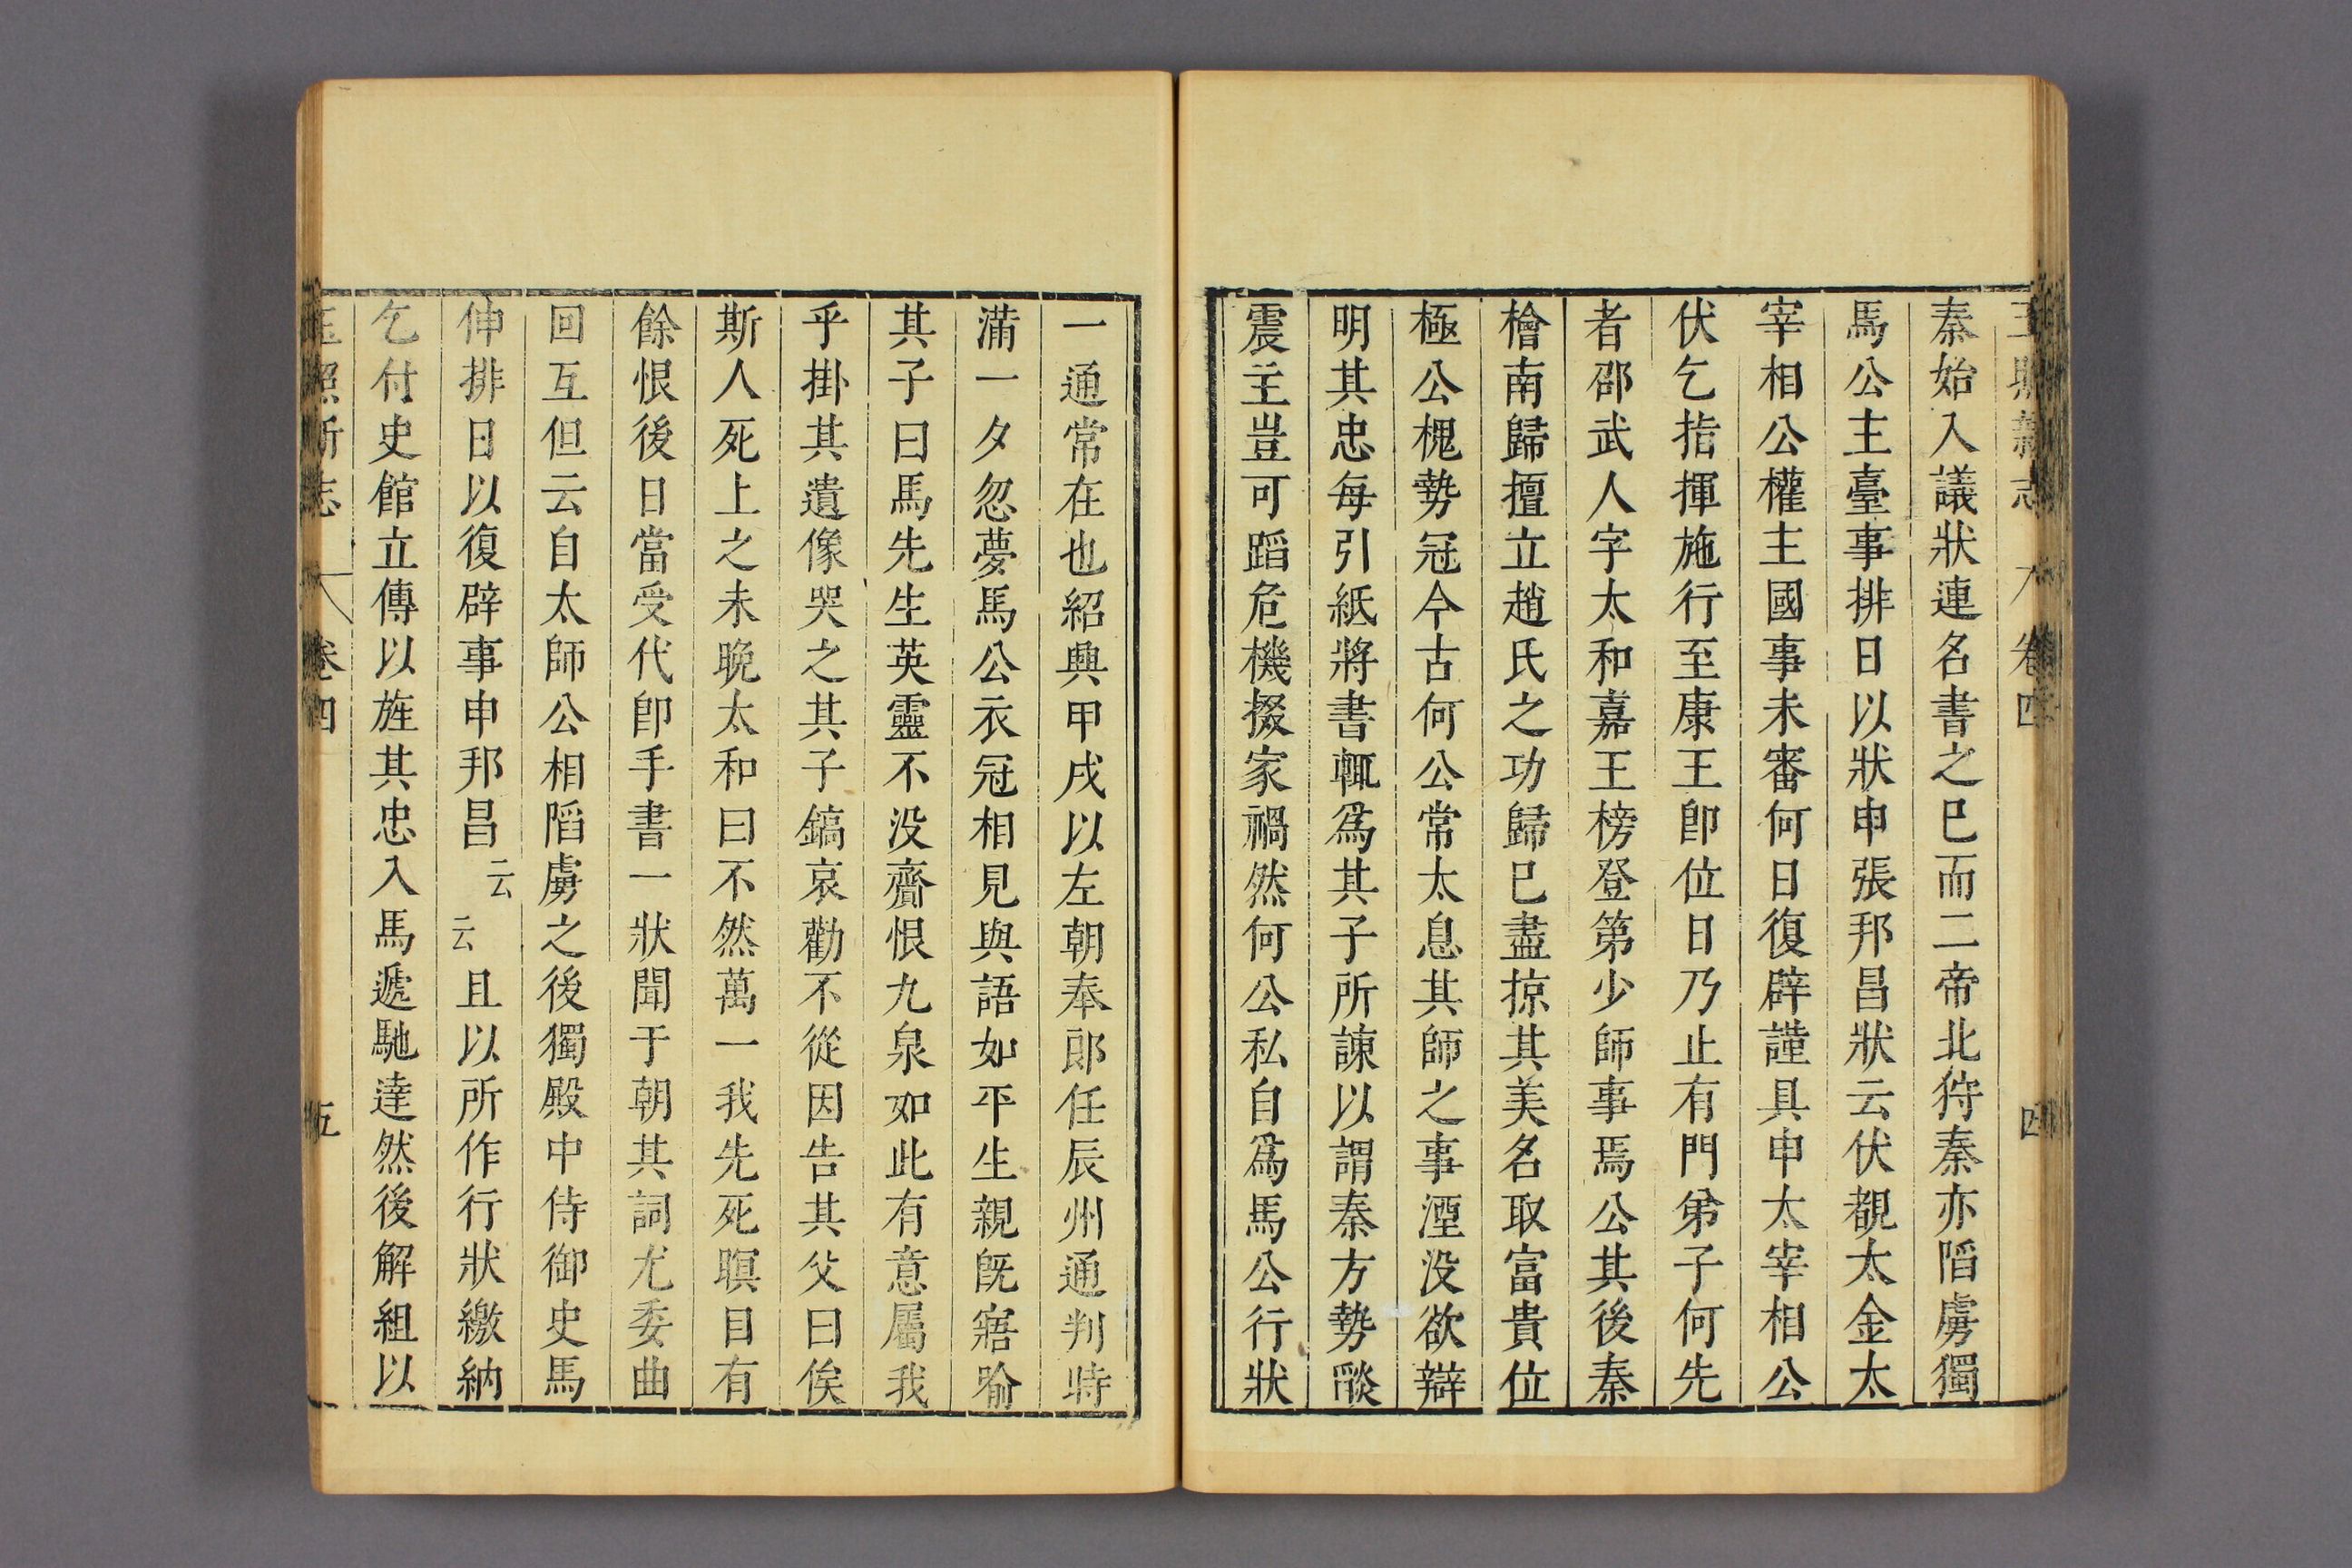 玉照新志 卷四 四
秦始入議狀連名書之巳而二帝北狩秦亦䧟虜獨
馬公主臺事排日以狀申張邦昌狀云伏覩太金太
宰相公權主國事未審何日復辟謹具申太宰相公
伏乞指揮施行至康王卽位日乃止有門弟子何先
者邵武人字太和嘉王榜登第少師事焉公其後秦
檜南歸擅立趙氏之功歸巳盡掠其美名取富貴位
極公槐勢冠今古何公常太息其師之事湮没欲辯
明其忠每引紙將書輒爲其子所諫以謂秦方勢燄
震主豈可蹈危機掇家禍然何公私自爲馬公行狀
一通常在也紹興甲戌以左朝奉郎任辰州通判時
滿一夕忽夢馬公衣冠相見與語如平生親旣寤喻
其子曰馬先生英靈不没齎恨九泉如此有意屬我
乎掛其遺像哭之其子鎬哀勸不從因告其父曰俟
斯人死上之未晚太和曰不然萬一我先死瞑目有
餘恨後日當受代卽手書一狀聞于朝其詞尤委曲
回互但云自太師公相䧟虜之後獨殿中侍御史馬
伸排日以復辟事申邦昌云云且以所作行狀繳納
乞付史館立傳以旌其忠入馬遞馳達然後解組以
玉照新志 卷四 五